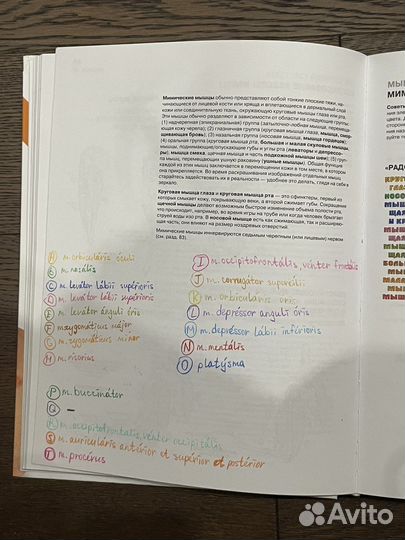 Мимические мышцы обычно представляют собой тонкие плоские тяжи, на-
чинающиеся от лицевой кости или хряща и вплетающиеся в дермальный слой
кожи или соединительную ткань, окружающую круговые мышцы глаза или рта.
Эти мышцы обычно разделяют в зависимости от области на следующие группы:
(1) надчерепная (эпикраниальная) группа (затылочно-лобная мышца, перемеща-
ющая кожу черепа); (2) глазничная группа (круговая мышца глаза, мышца, смор-
щивающая бровь); (3) назальная группа (носовая мышца, мышца гордецов);
(4) оральная группа (круговая мышца рта, большая и малая скуловые мышцы,
мышцы, поднимающие/опускающие губы и угол рта (леваторы и депрессо-
ры), мышца смеха, щечная мышца и часть подкожной мышцы шеи); (5) груп-
па мышц, перемещающих ушную раковину (ушные мышцы). Общая функция
каждой из этих мышц заключается в перемещении кожи в том месте, в котором
она прикрепляется. Во время раскрашивания изображений отдельных мышц
старайтесь задействовать их в реальности — удобнее это делать, глядя на себя у
зеркала.
Круговая мышца глаза и круговая мышца рта — это сфинктеры, первый из
которых смыкает кожу, покрывающую веки, а второй сжимает губы. Сокращение
щечной мышцы делает возможным быстрое изменение объема полости рта,
что происходит, например, во время игры на трубе или когда человек брызгает
струей воды изо рта. В носовой мышце есть как сжимающая, так и расширяю-
щая части; они влияют на размер ноздревых отверстий.
Мимические мышцы иннервируются седьмым черепным (или лицевым) нервом
(см. разд. 83).
A m. orbiculáris óculi
B m. nasális
C m. levátor lábii supérioris
D m. levátor lábii supérioris
E m. levátor ánguli óris
F m. zygomáticus májor
G m. zygomáticus mínor
H m. risorius
I m. occipitofrontális, vénter frontális
J m. corrugátor supercílii
K m. orbiculáris óris
L m. depréssor ánguli óris
M m. depréssor lábii inférioris
N m. mentális
O platýsma
P m. buccinátor
Q —
R m. occipitofrontális, vénter occipitális
S m. auriculáris antérior et supérior et postérior
T m. procérus
МЫШ
МИМ
Советы
«РАДО
КРУГО
ГЛАЗ
НОСО